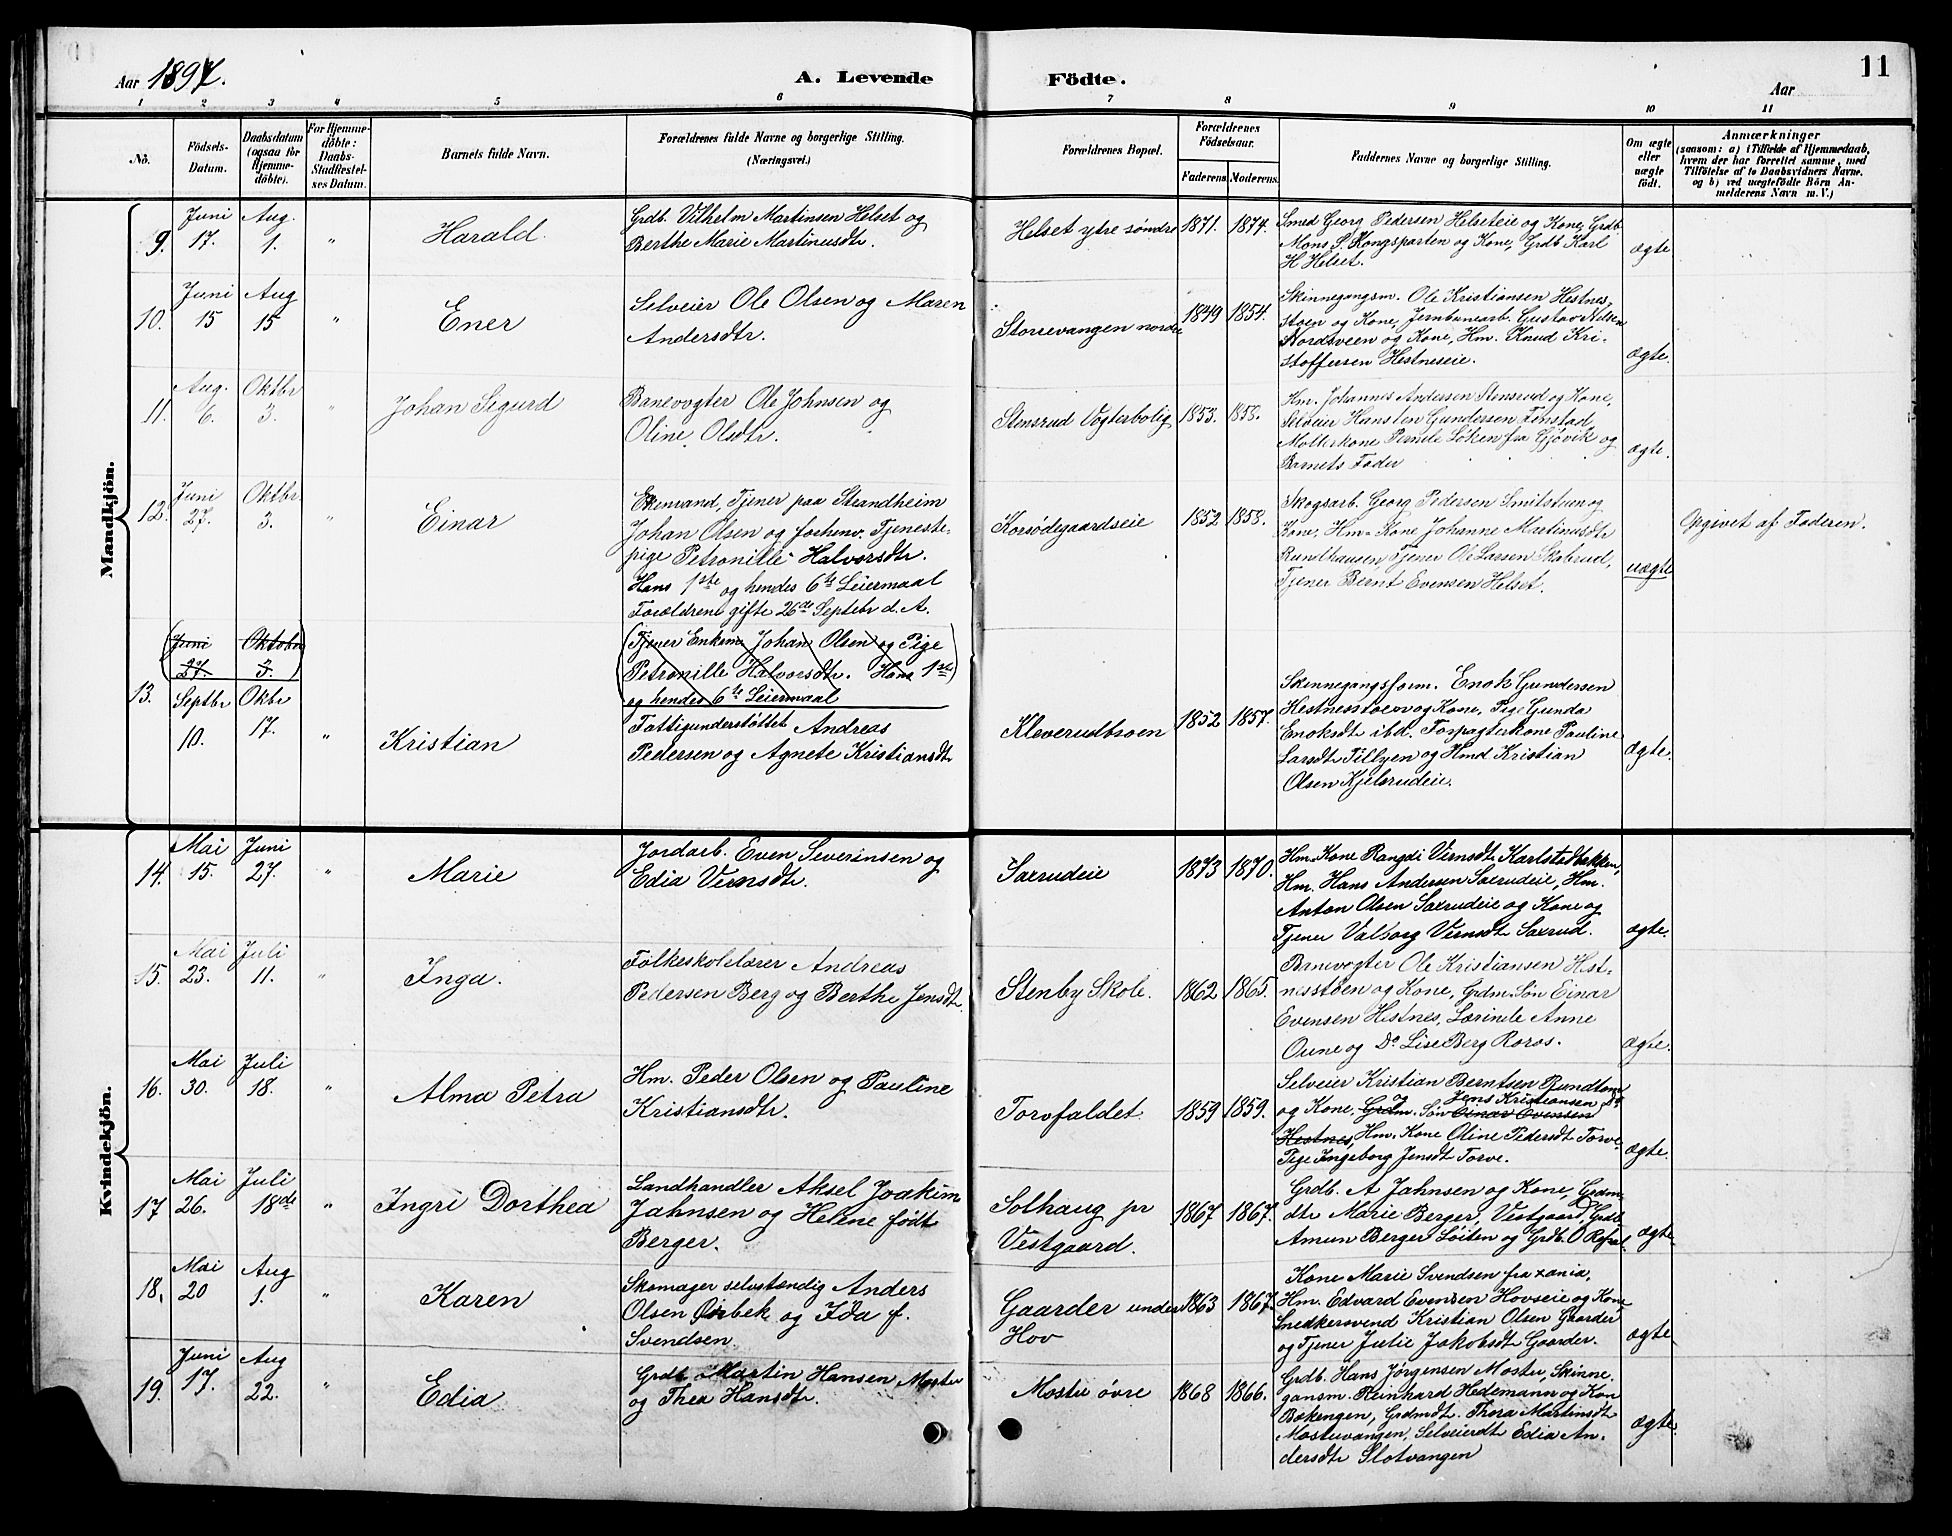 Aar 1897.
A. Levende
Födte.
11
Aar
1 2 3 4 5 6 7 8 9 10 11
No.
Födsels-
Datum.
Daabsdatum
(ogsaa for
Hjemme-
döbte).
For Hjemme-
döbte:
Daabs-
Stadfestel-
ses Datum.
Barnets fulde Navn.
Forældrenes fulde Navne og borgerlige Stilling.
(Næringsvei.)
Forældrenes Bopæl.
Forældrenes
Födselsaar.
Faderens Moderens.
Faddernes Navne og borgerlige Stilling.
Om ægte
eller
uægte
födt.
Anmærkninger
(saasom: a) i Tilfælde af Hjemmedaab,
hvem der har forrettet samme, med
Tilföielse af to Daabsvidners Navne.
og b) ved uægtefödte Börn An-
melderens Navn m. V.)
Mandkjön.
9.
Juni
17.
Aug.
1.
"
Harald.
Grdb. Vilhelm Martinsen Helset og
Berthe Marie Martinusdtr.
Helset ytre søndre
1871. 1874.
Smed Georg Pedersen Helseteie og Kone, Grdb.
Mons P. Kongsparten og Kone, Grdb Karl
H Helset.
ægte
10.
Juni
15
Aug
15
"
Ener
Selveier Ole Olsen og Maren
Andersdtr.
Storrevangen nordre
1849 1854.
Skinnegangsm. Ole Kristiansen Hestnes-
støen og Kone, Jernbanearb. Gustav Nilsen
Nordsveen og Kone, Hm. Knud Kri-
stoffersen Hestneseie.
ægte.
11.
Aug.
6.
Oktbr
3.
"
Johan Sigurd
Banevogter Ole Johnsen og
Oline Olsdtr.
Stensrud Vogterbolig
1853. 1858.
Hm. Johannes Andersen Stensrud og Kone,
Selveier Hansten Gundersen Finstad,
Møllerkone Pernile Løken fra Gjøvik og
Barnets Fader
ægte.
12.
Juni
27.
Oktbr
3.
"
Einar
Enkemand, Tjener paa Strandheim
Johan Olsen og forhenv. Tjeneste-
pige Petronille Halvorsdtr.
Hans 1ste og hendes 6te Leiermaal
Forældrene gifte 26de Septbr d. A.
Korsödegaardseie
1852 1858.
Skogsarb. Georg Pedersen Smitstun og
Kone, Hm-Kone Johanne Martinusdtr
Rundhaugen, Tjener Ole Larsen Skabrud,
Tjener Bernt Evensen Helset.
uægte
Opgivet af Faderen.
13.
(Juni
27.
Oktober
3.)
(Tjener Enkem. Johan Olsen og Pige
Petronille Halvorsdtr. Hans 1ste)
og hendes 6te Leiermaal
Septbr
10.
Oktbr
17.
"
Kristian
Fattigunderstöttet Andreas
Pedersen og Agnete Kristiansdt
Kleverudbsoen
1852 1857.
Skinnegangsform. Enok Gundersen
Hestnesstoen og Kone, Pige Gunda
Enoksdt ibd. Forpagterkone Pauline
Larsdtr Tillyen og Hmd Kristian
Olsen Kjelsrudeie.
ægte.
Kvindekjön.
14.
Mai
15.
Juni
27.
"
Marie
Jordarb. Even Severinsen og
Edia Vernsdtr.
Saxrudeie
1873 1870.
Hm-Kone Rangdi Vernsdtr Karlstadbakken,
Hm. Hans Andersen Saxrudeie, Hm.
Anton Olsen Saxrudeie og Kone og
Tjener Valborg Vernsdtr Saxrud.
ægte.
15.
Mai
23.
Juli
11.
"
Inga.
Folkeskolelærer Andreas
Pedersen Berg og Berthe Jensdt.
Stenby Skole.
1862 1865.
Banevogter Ole Kristiansen Hest-
nesstøen og Kone, Grdm. Søn Einar
Evensen Hestnes, Lærinde Anne
Oune og Do Lise Berg Roros.
ægte.
16.
Mai
30.
Juli
18.
"
Alma Petra
Hm. Peder Olsen og Pauline
Kristiansdtr.
Torvfaldet
1859 1859.
Selveier Kristian Berntsen Rundtom
og Jens Kristiansen Do
og Kone, Grdm. Søn Einar Evensen
Hestnes, Hm. Kone Oline Pedersdt Torve
Pige Ingeborg Jensdt Torve.
ægte.
17
Mai
26.
Juli
18de
"
Ingri Dorthea
Landhandler Aksel Joakim
Jahnsen og Helene født
Berger.
Solhaug pr
Vestgaard.
1867 1867.
Grdb. A Jahnsen og Kone, Grdm-
dtr Marie Berger, Vestgaard, Grdb
Amun Berger Løiten og Grdb. O
ægte
18.
Mai
20
Aug
1.
"
Karen
Skomager selvstændig Anders
Olsen Ørbek og Ida f.
Svendsen.
Gaarder under
Hov
1863 1867.
Kone Marie Svendsen fra xania,
Hm. Edvard Evensen Hovseie og Kone
Snedkersvend Kristian Olsen Gaarder
og Tjener Julie Jakobsdt Gaarder.
ægte
19.
Juni
17.
Aug
22.
"
Edia
Grdb Martin Hansen Mostu
og Thea Hansdtr.
Mostu övre
1868 1866.
Grdb. Hans Jörgensen Mostu, Skinne-
gansm. Reinhard Hedemann og Kon
Bækengen, Grdmdt. Thora Martinsdt
Mostuvangen, Selveierdt Edia An-
dersdtr Slotvangen
ægte